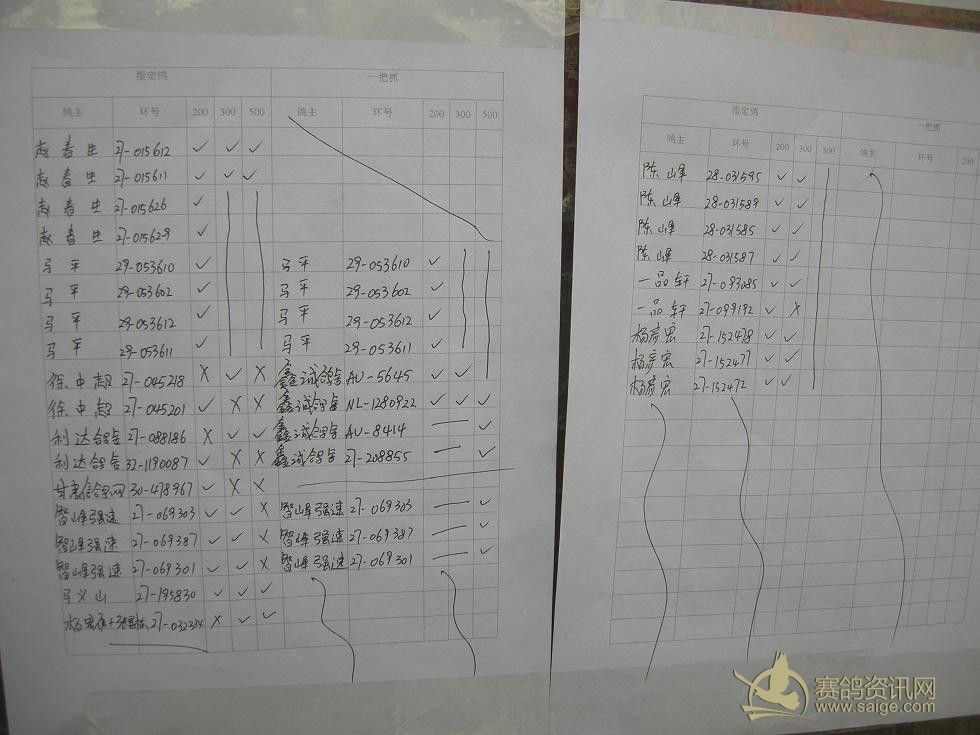 指定鸽 一把抓
鸽主 环号 200 300 500 鸽主 环号 200 300 500
赵春生 27-015612 ✓ ✓ ✓
赵春生 27-015611 ✓ ✓ ✓
赵春生 27-015626 ✓
赵春生 27-015629 ✓
马平 29-053610 ✓ 马平 29-053610 ✓
马平 29-053602 ✓ 马平 29-053602 ✓
马平 29-053612 ✓ 马平 29-053612 ✓
马平 29-053611 ✓ 马平 29-053611 ✓
徐中超 27-045218 X ✓ X 鑫诚鸽舍 AU-5645 ✓ ✓
徐中超 27-045201 ✓ X X 鑫诚鸽舍 NL-1280922 ✓ ✓ ✓
利达鸽舍 27-088186 X ✓ ✓ 鑫诚鸽舍 AU-8414 — ✓
利达鸽舍 32-1190087 ✓ X X 鑫诚鸽舍 27-208855 — ✓
甘肃信鸽网 30-478967 ✓ X X
智峰强速 27-069303 ✓ ✓ X 智峰强速 27-069303 — ✓
智峰强速 27-069387 ✓ ✓ X 智峰强速 27-069387 — ✓
智峰强速 27-069301 ✓ ✓ X 智峰强速 27-069301 — ✓
马义山 27-195830 ✓ ✓ ✓
27-032334 X ✓ ✓
指定鸽 一把抓
鸽主 环号 200 300 500 鸽主 环号 200
陈峰 28-031595 ✓ ✓
陈峰 28-031589 ✓ ✓
陈峰 28-031585 ✓ ✓
陈峰 28-031587 ✓ ✓
一品轩 27-093085 ✓ ✓
一品轩 27-099192 ✓ X
杨彦宏 27-152478 ✓ ✓
杨彦宏 27-152477 ✓ ✓
杨彦宏 27-152472 ✓ ✓
赛鸽资讯网
www.saige.com